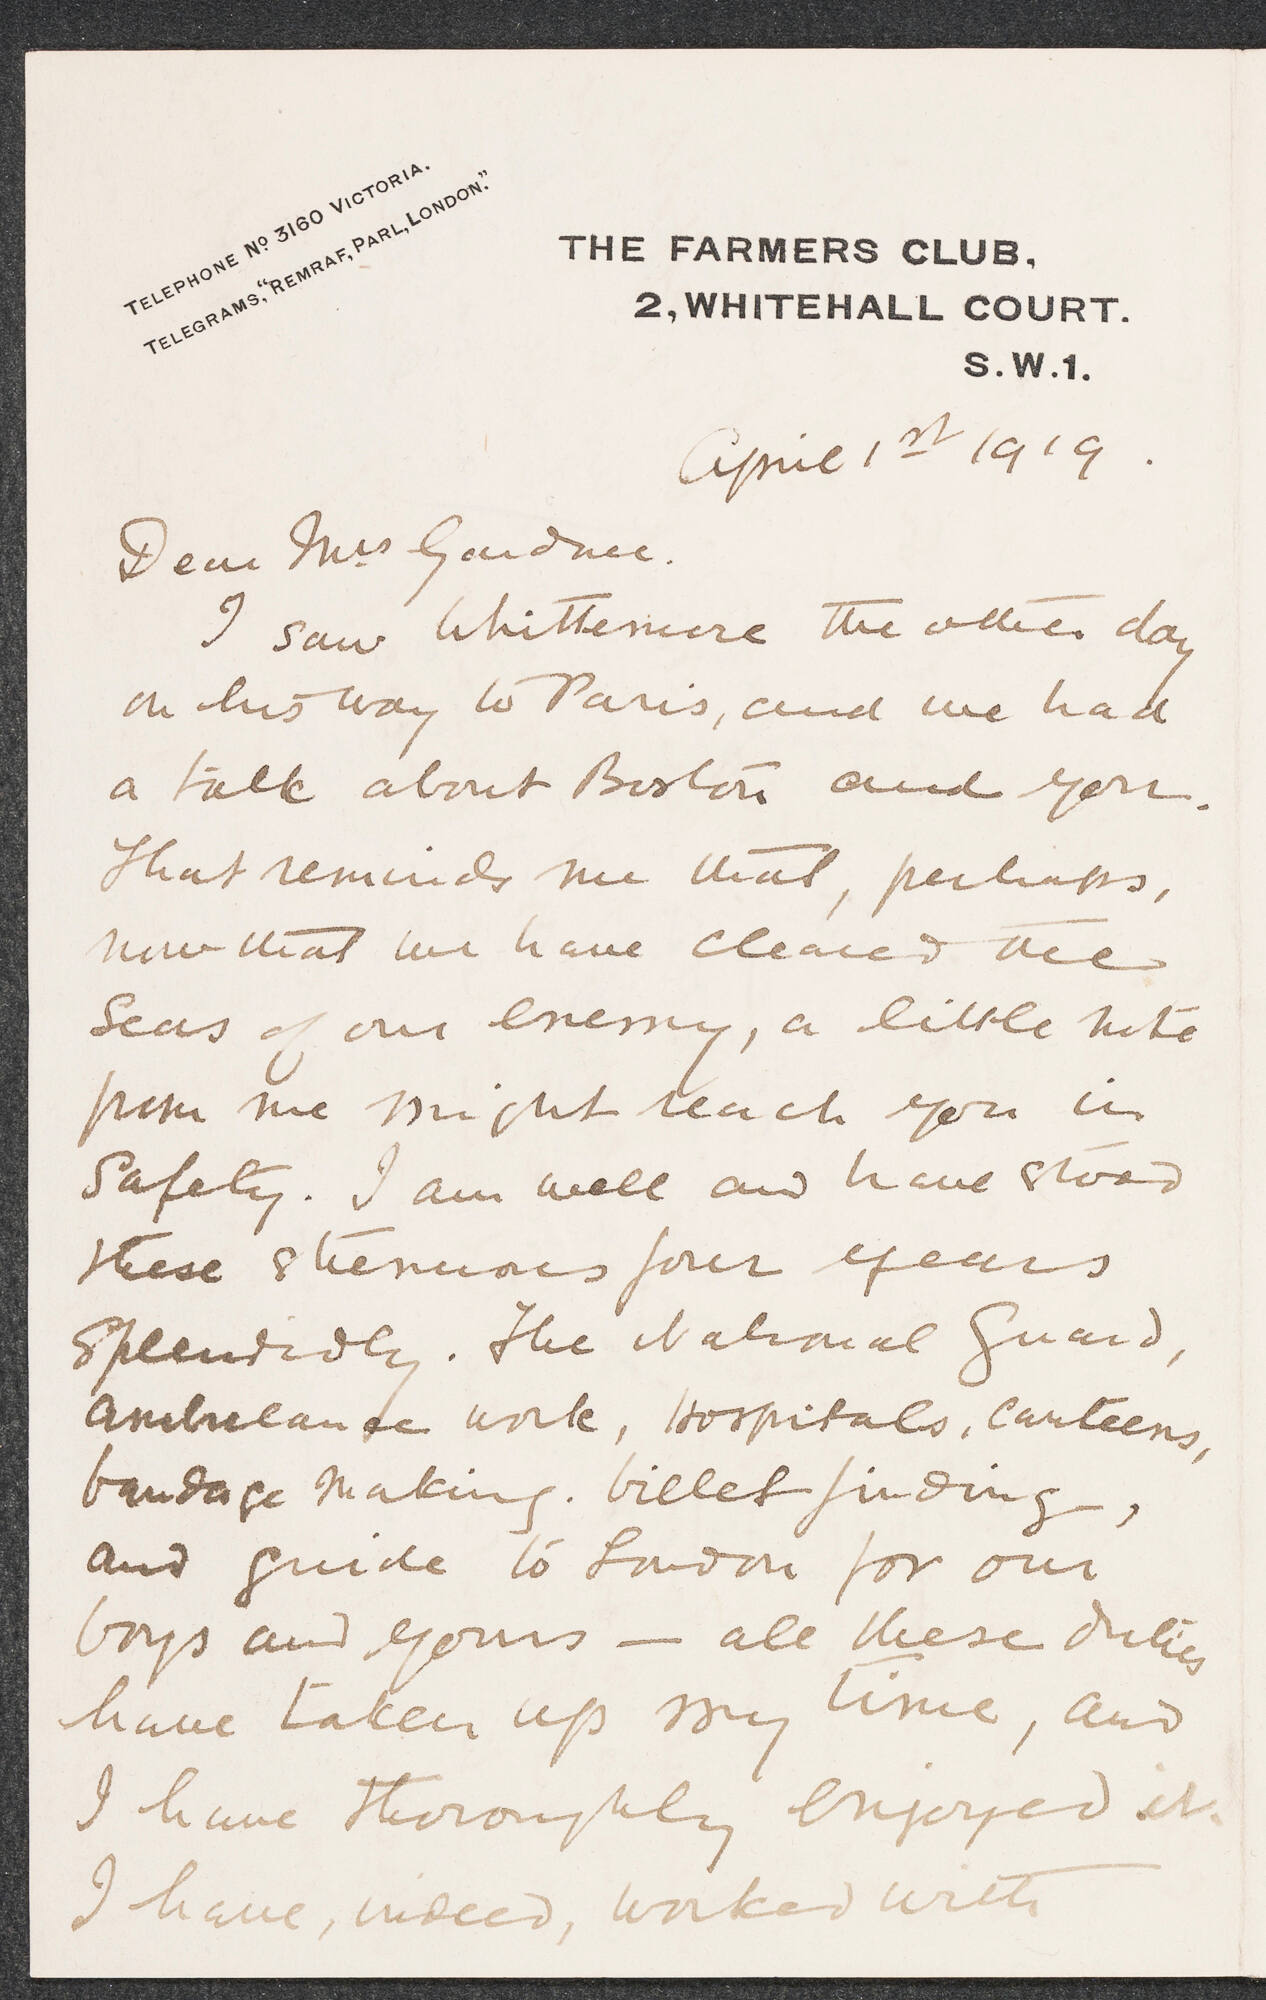 TELEPHONE No 3160 VICTORIA.
TELEGRAMS, "REMRAF, PARL, LONDON."
THE FARMERS CLUB,
2, WHITEHALL COURT.
S.W.1.
April 1st 1919.
Dear Mrs Gardner.
I saw Whittemore the other day
on his way to Paris, and we had
a talk about Boston and you.
That reminds me that, perhaps,
now that we have cleared the
Seas of our enemy, a little note
from me might reach you in
Safety. I am well and have stood
these strenuous four years
Splendidly. The National Guard,
ambulance work, Hospitals, Canteens,
bandage making. billet finding,
and guide to London for our
boys and yours — all these duties
have taken up my time, and
I have thoroughly enjoyed it.
I have, indeed, worked with